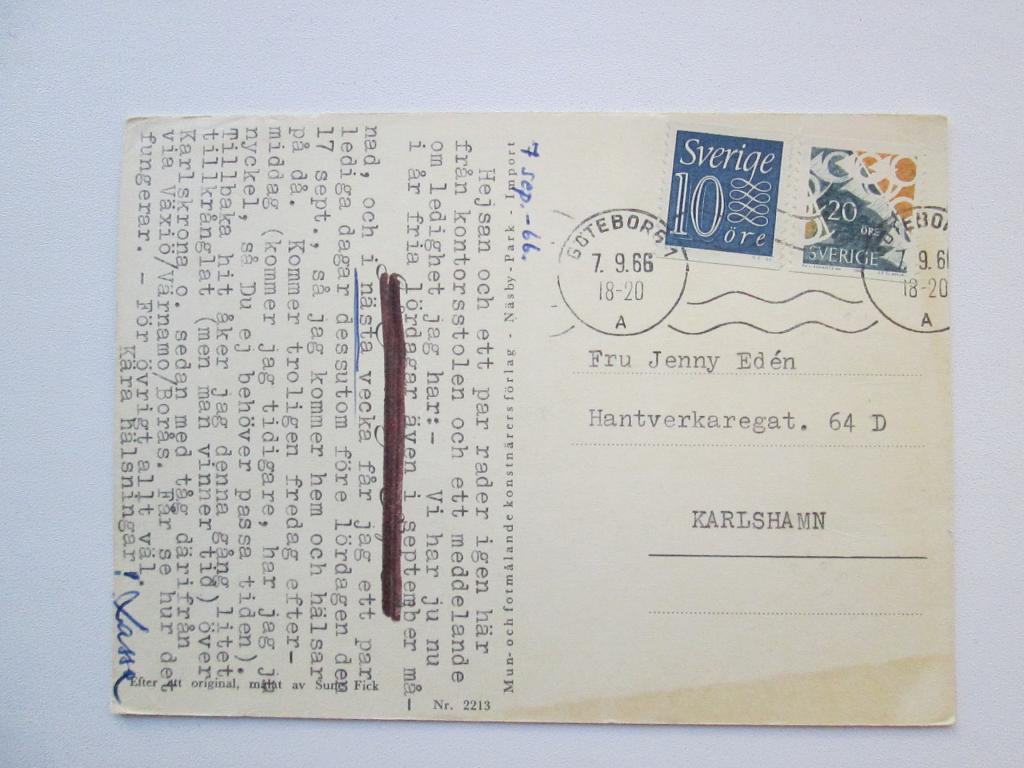 7 sep. -66.
Hejsan och ett par rader igen här
från kontorsstolen och ett meddelande
om ledighet jag har:- Vi har ju nu
i år fria lördagar även i september må-
nad, och i nästa vecka får jag ett par
lediga dagar dessutom före lördagen den
17 sept., så jag kommer hem och hälsar
på då. Kommer troligen fredag efter-
middag (kommer jag tidigare, har jag ju
nyckel, så Du ej behöver passa tiden).
Tillbaka hit åker jag denna gång litet
tillkrånglat (men man vinner tid) över
Karlskrona o. sedan med tåg därifrån
via Växiö/Värnamo/Borås. Får se hur det
fungerar. - För övrigt allt väl.
Kära hälsningar!
Lasse
Efter ett original, målat av Sune Fick
Nr. 2213
Mun- och fotmålande konstnärers förlag - Näsby-Park - Import
Sverige
10
öre
20
ÖRE
SVERIGE
GÖTEBORG 1
7. 9.66
18-20
A
TEBOR
7. 9.6
18-20
A
Fru Jenny Edén
Hantverkaregat. 64 D
KARLSHAMN